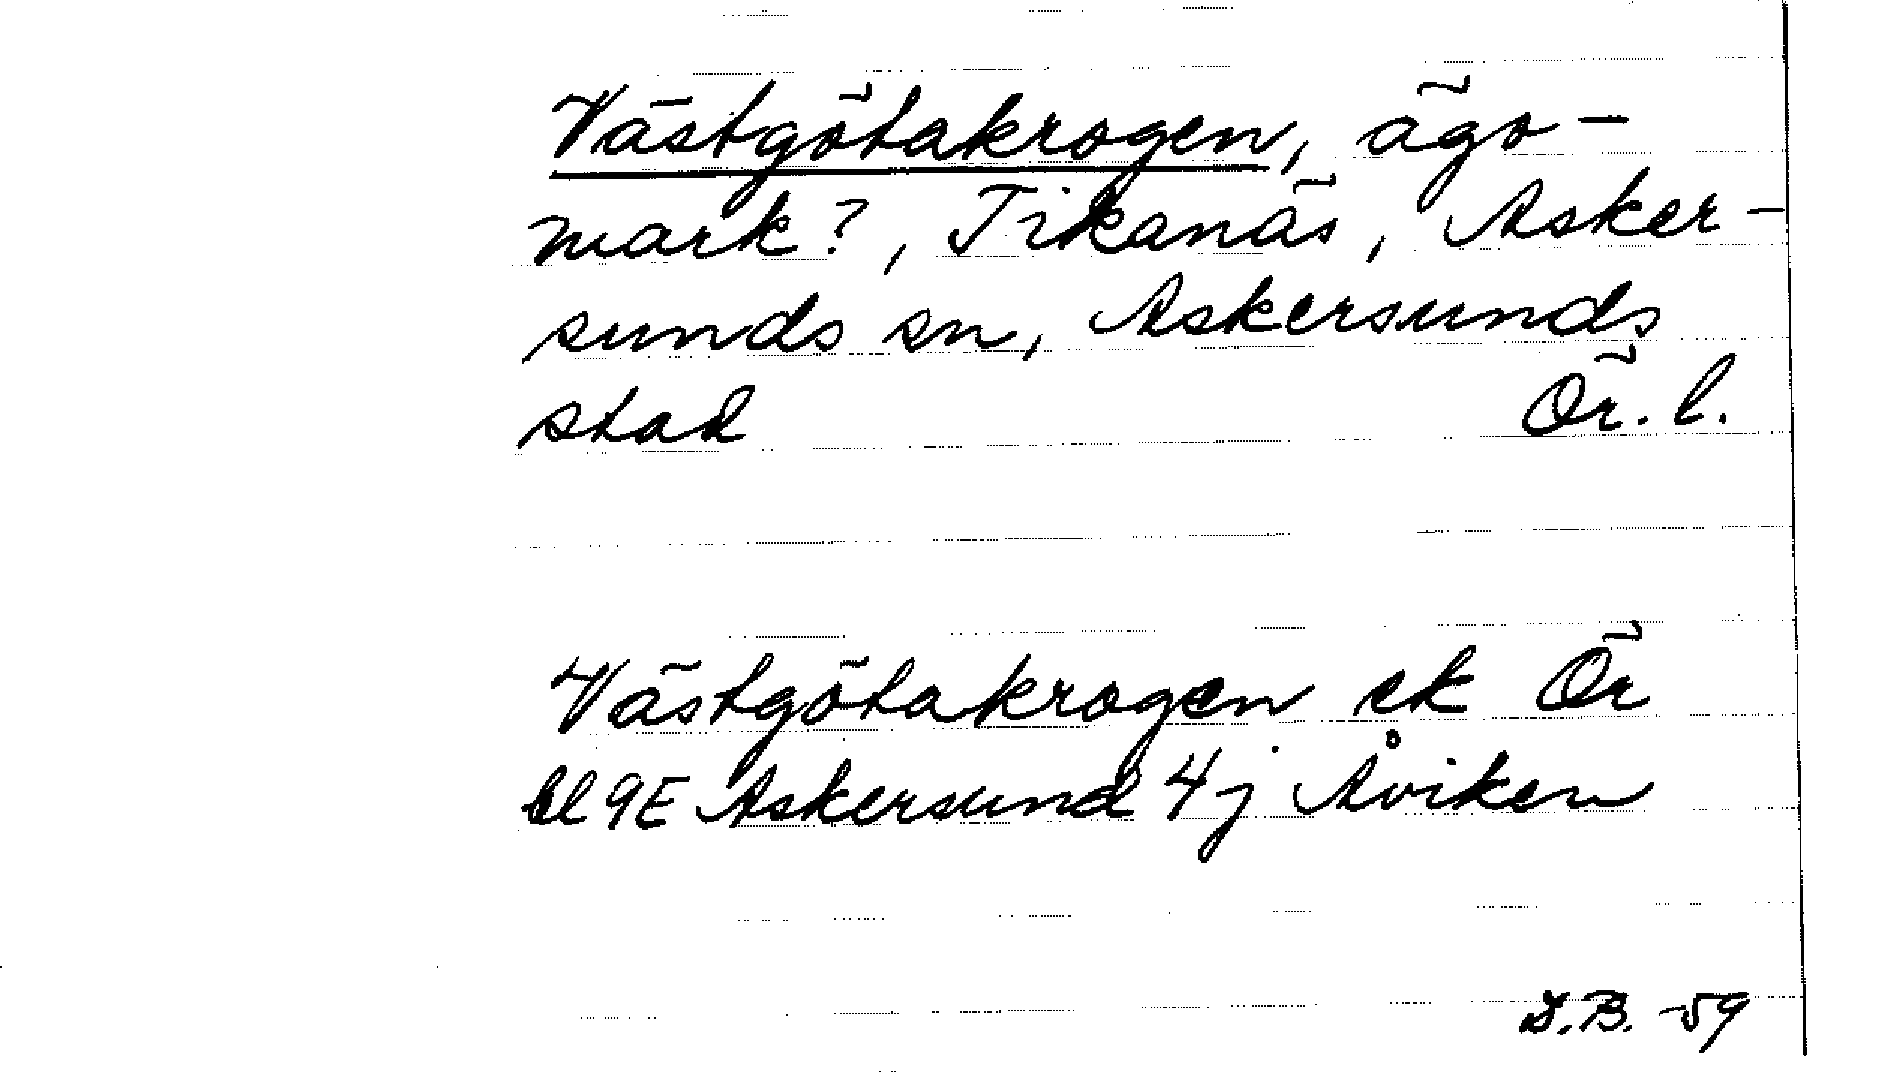 Västgötakrogen, ägo-
mark?, Tikanäs, Asker-
sunds sn, Askersunds
stad Ör. l.
Västgötakrogen ek Ör
bl 9E Askersund 4j Åviken
I.B. -59